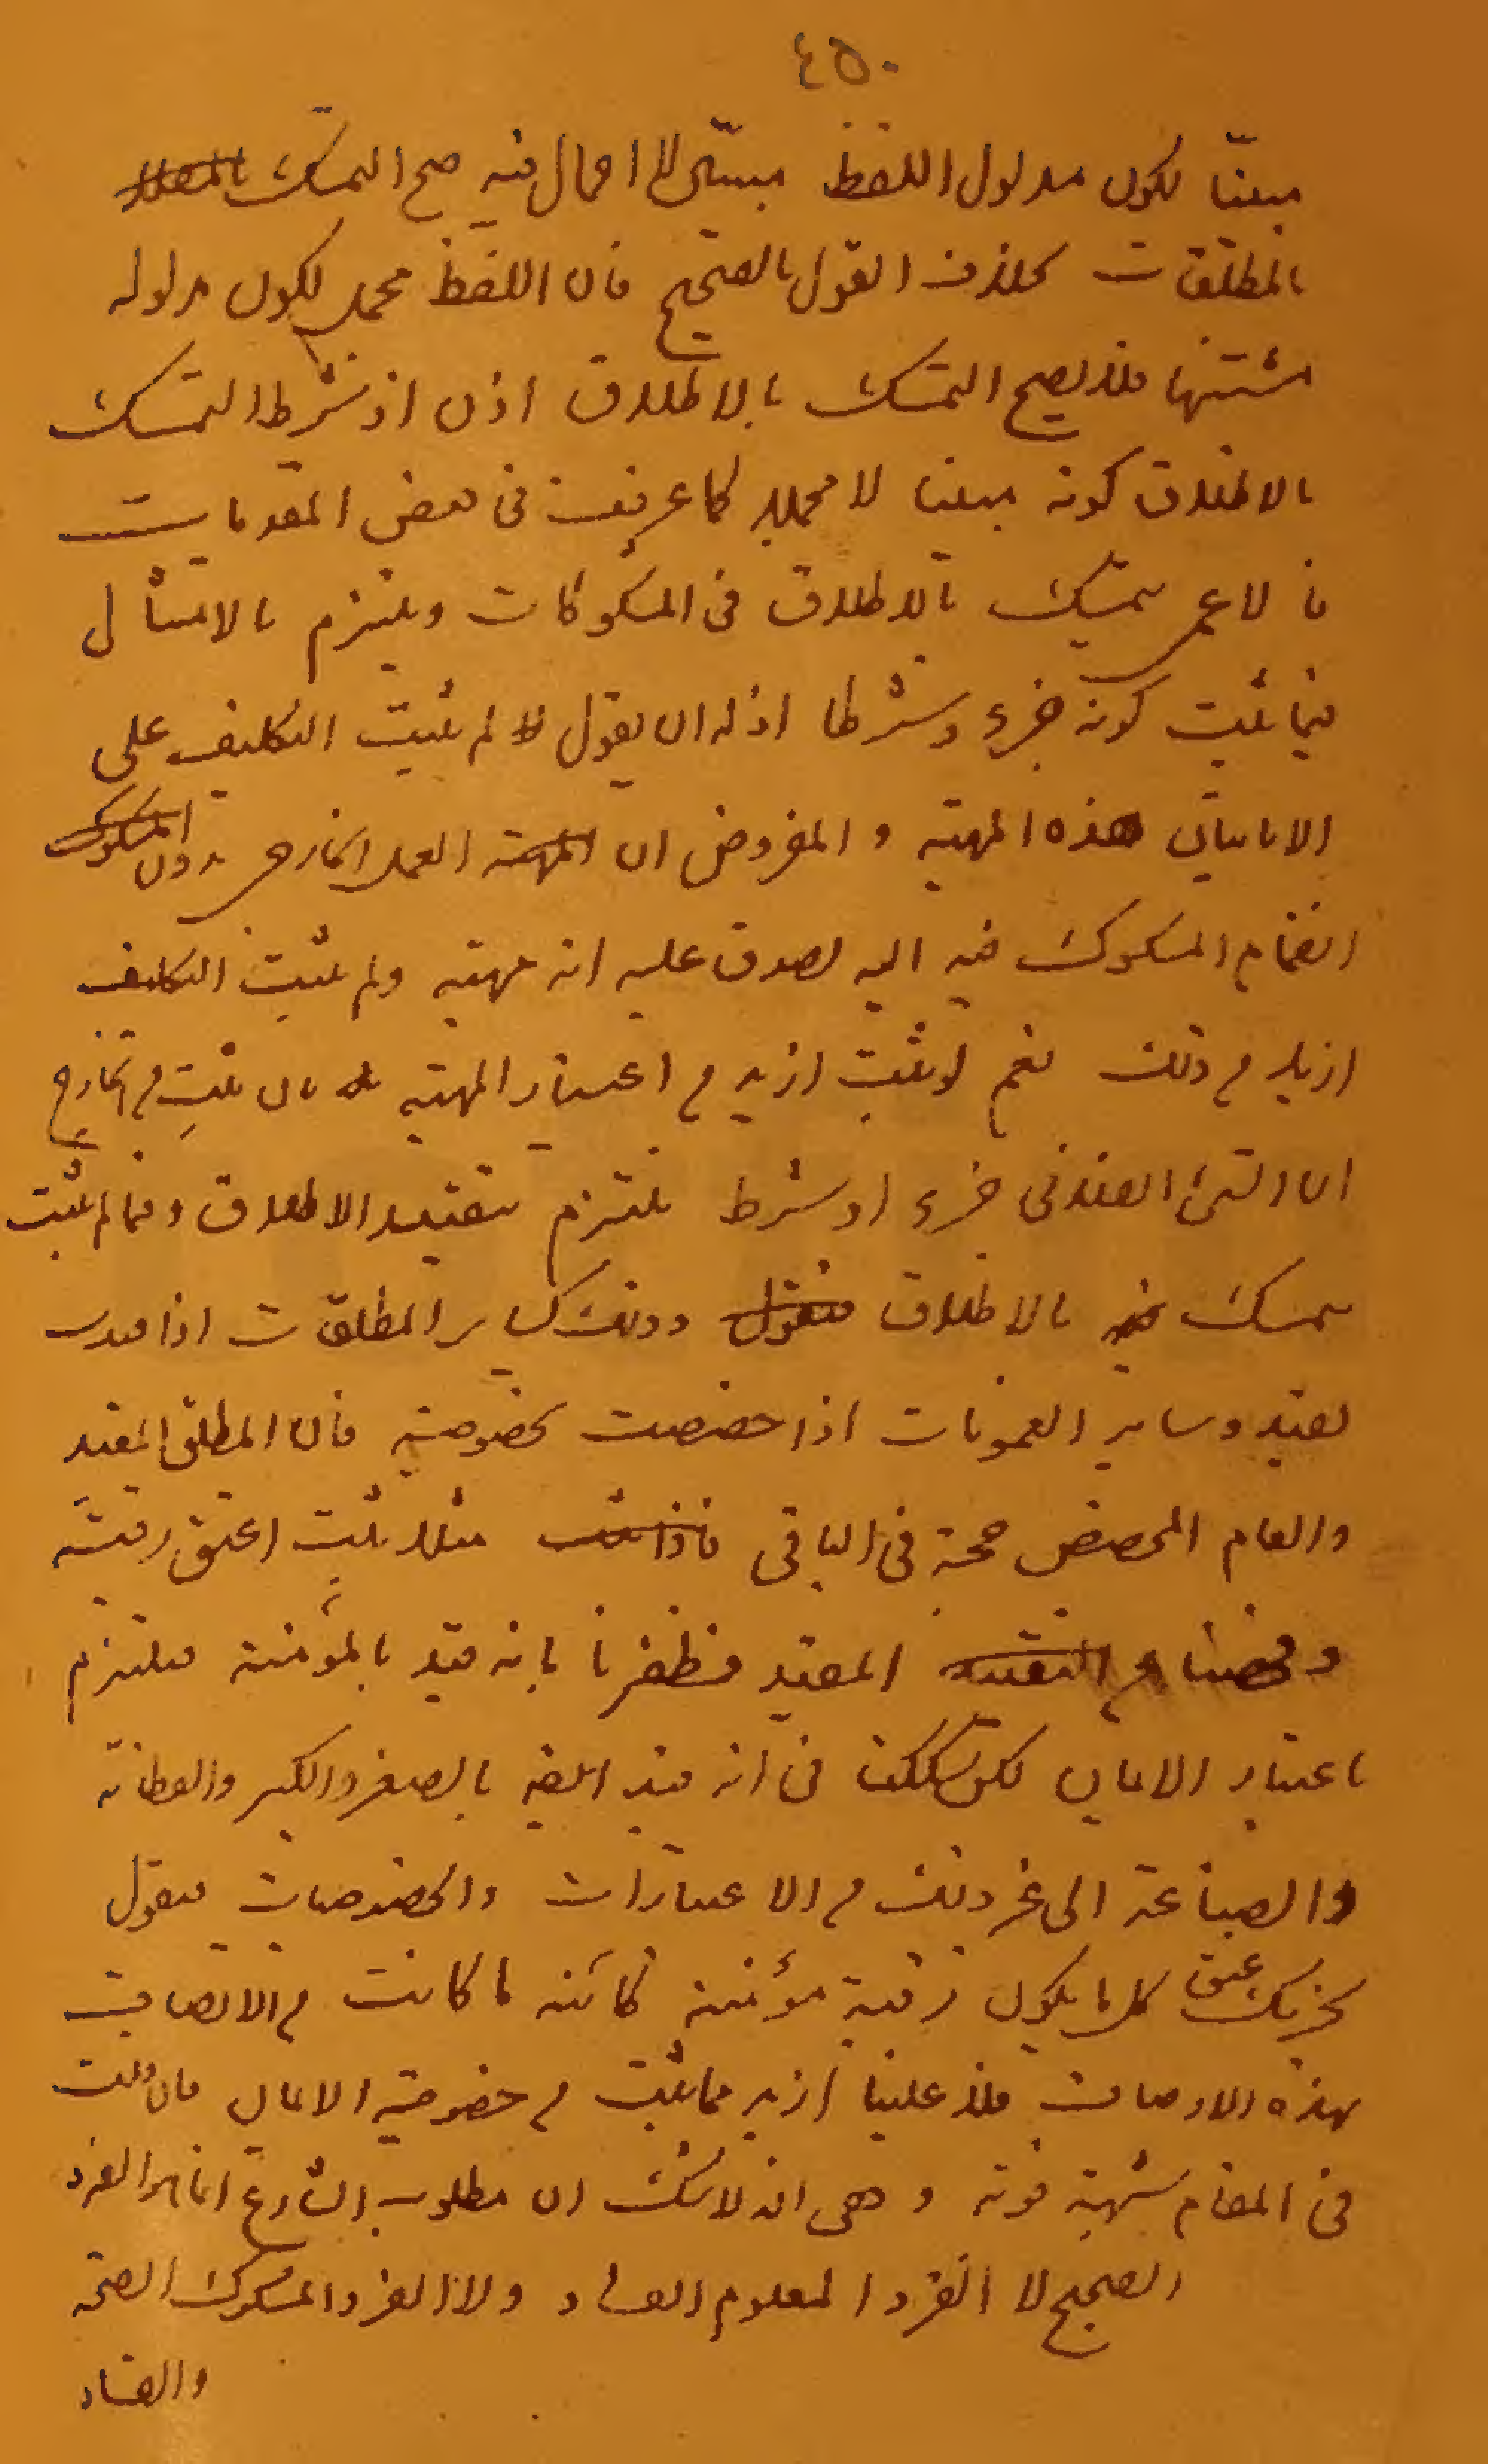 ٤٥٠
مبينا لكون مدلول اللفظ مبينا لا اجمال فيه صح التمسك
بالمطلقات بخلاف القول بالصحيح فان اللفظ مجمل لكون مدلوله
مشتبها فلا يصح التمسك بالاطلاق اذن اذ شرط التمسك
بالاطلاق كونه مبينا لا مجملا كما عرفت فى بعض المقدمات
فالاعمى يتمسك بالاطلاق فى المشكوكات ويلتزم بالامتثال
فيما ثبت كونه جزء وشرطا اذ له ان يقول لم يثبت التكليف على
الا باتيان هذه المهية والمفروض ان المهية العمل الخارجى بدون المشكوك
انضمام المشكوك فيه اليه يصدق عليه انه مهية ولم يثبت التكليف
ازيد من ذلك نعم لو ثبت ازيد من اعتبار المهية بان ثبت من الخارج
ان الشئ الفلانى جزء او شرط يلتزم بتقييد الاطلاق وفيما لم يثبت
يتمسك فيه بالاطلاق فنقول وذلك كساير المطلقات اذا قيدت
بقيد وساير العمومات اذا خصصت بخصوصية فان المطلق المقيد
والعام المخصص حجة فى الباقى فاذا ثبت مثلا ثبت اعتق رقبة
وفحصنا من التقييد المقيد فظفرنا بانه قيد بالمؤمنة فيلتزم
باعتبار الايمان لكن شككنا فى انه قيد ايضا بالصغر والكبر والفطانة
والصباغة الى غير ذلك من الاعتبارات والخصوصيات فيقول
يجزيك عتق كل ما يكون رقبة مؤمنة كائنة ما كانت من الاتصاف
بهذه الاوصاف فلا علينا ازيد مما ثبت من خصوصية الايمان فان قلت
فى المقام شبهة قوية وهى انه لا شك ان مطلوب الشارع انما هو الفرد
الصحيح لا الفرد المعلوم الفساد ولا الفرد المشكوك الصحة
والفساد